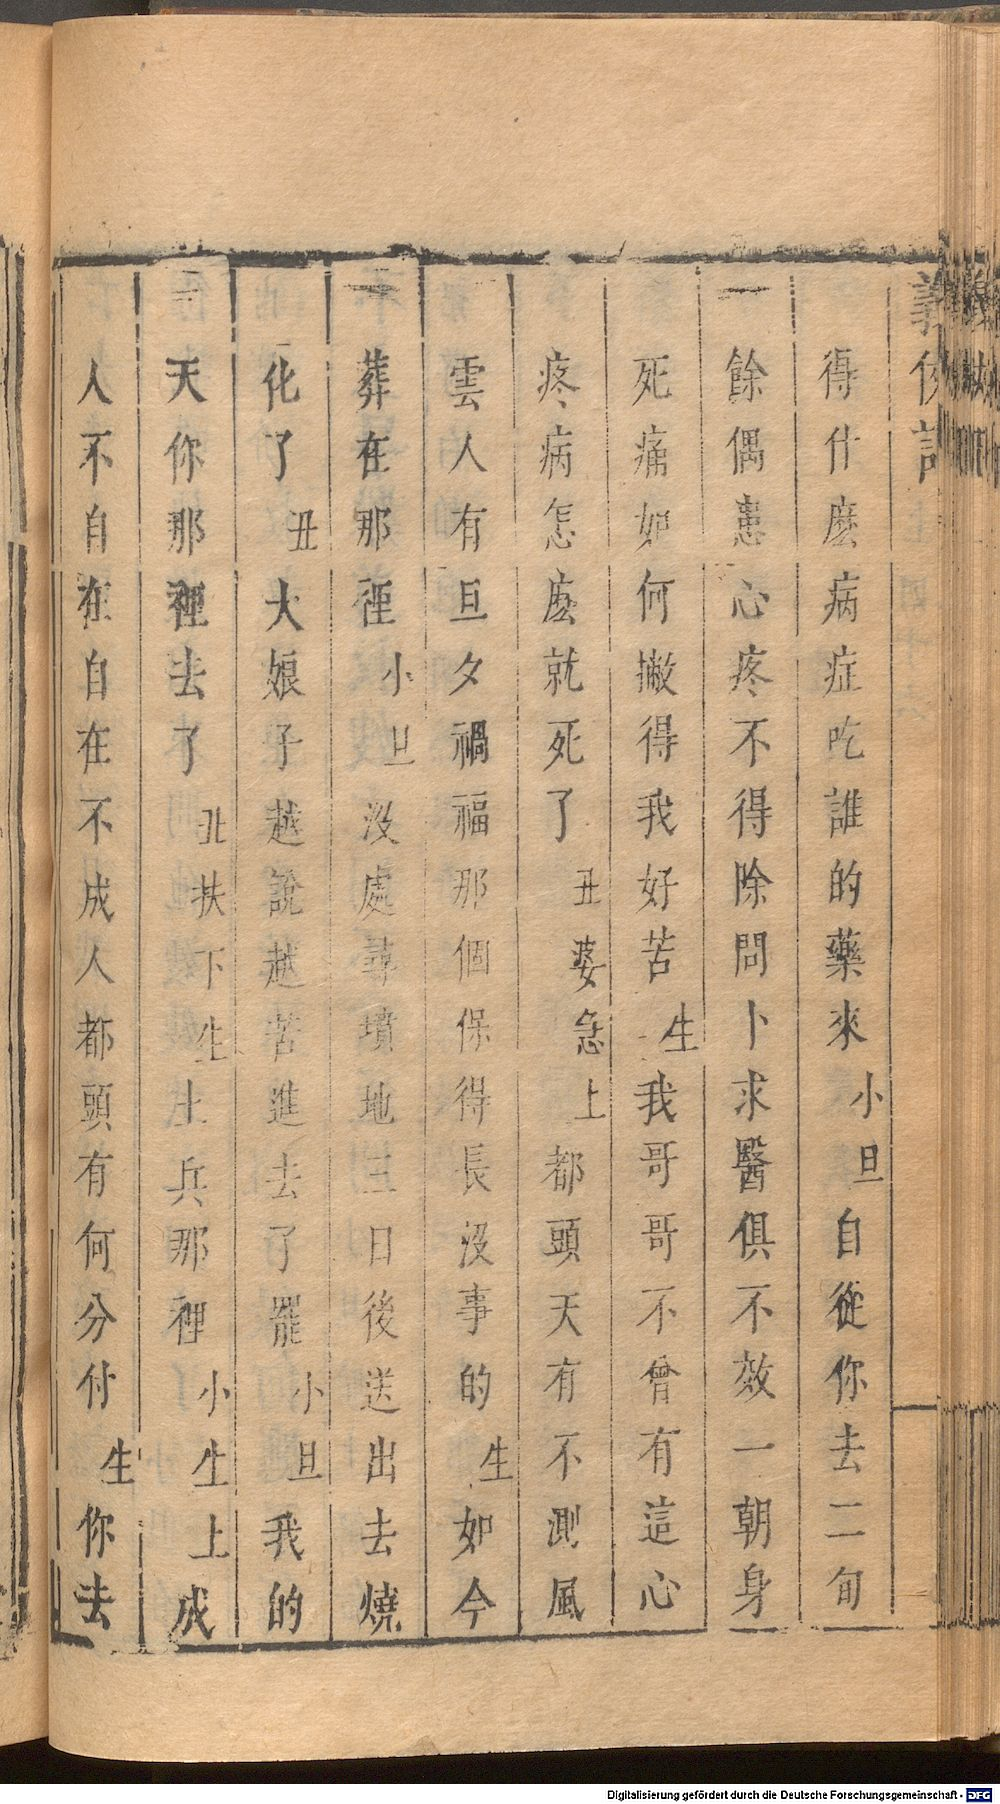 義俠記
得什麽病症吃誰的藥來小旦自從你去二旬
餘偶患心疼不得除問卜求醫俱不效一朝身
死痛如何撇得我好苦生我哥哥不曾有這心
疼病怎麽就死了丑婆急上都頭天有不測風
雲人有旦夕禍福那個保得長沒事的生如今
葬在那裡小旦沒處尋墳地三日後送出去燒
化了丑大娘子越說越苦進去了罷小旦我的
天你那裡去了丑扶下生土兵那裡小生上成
人不自在自在不成人都頭有何分付生你去
Digitalisierung gefördert durch die Deutsche Forschungsgemeinschaft - DFG